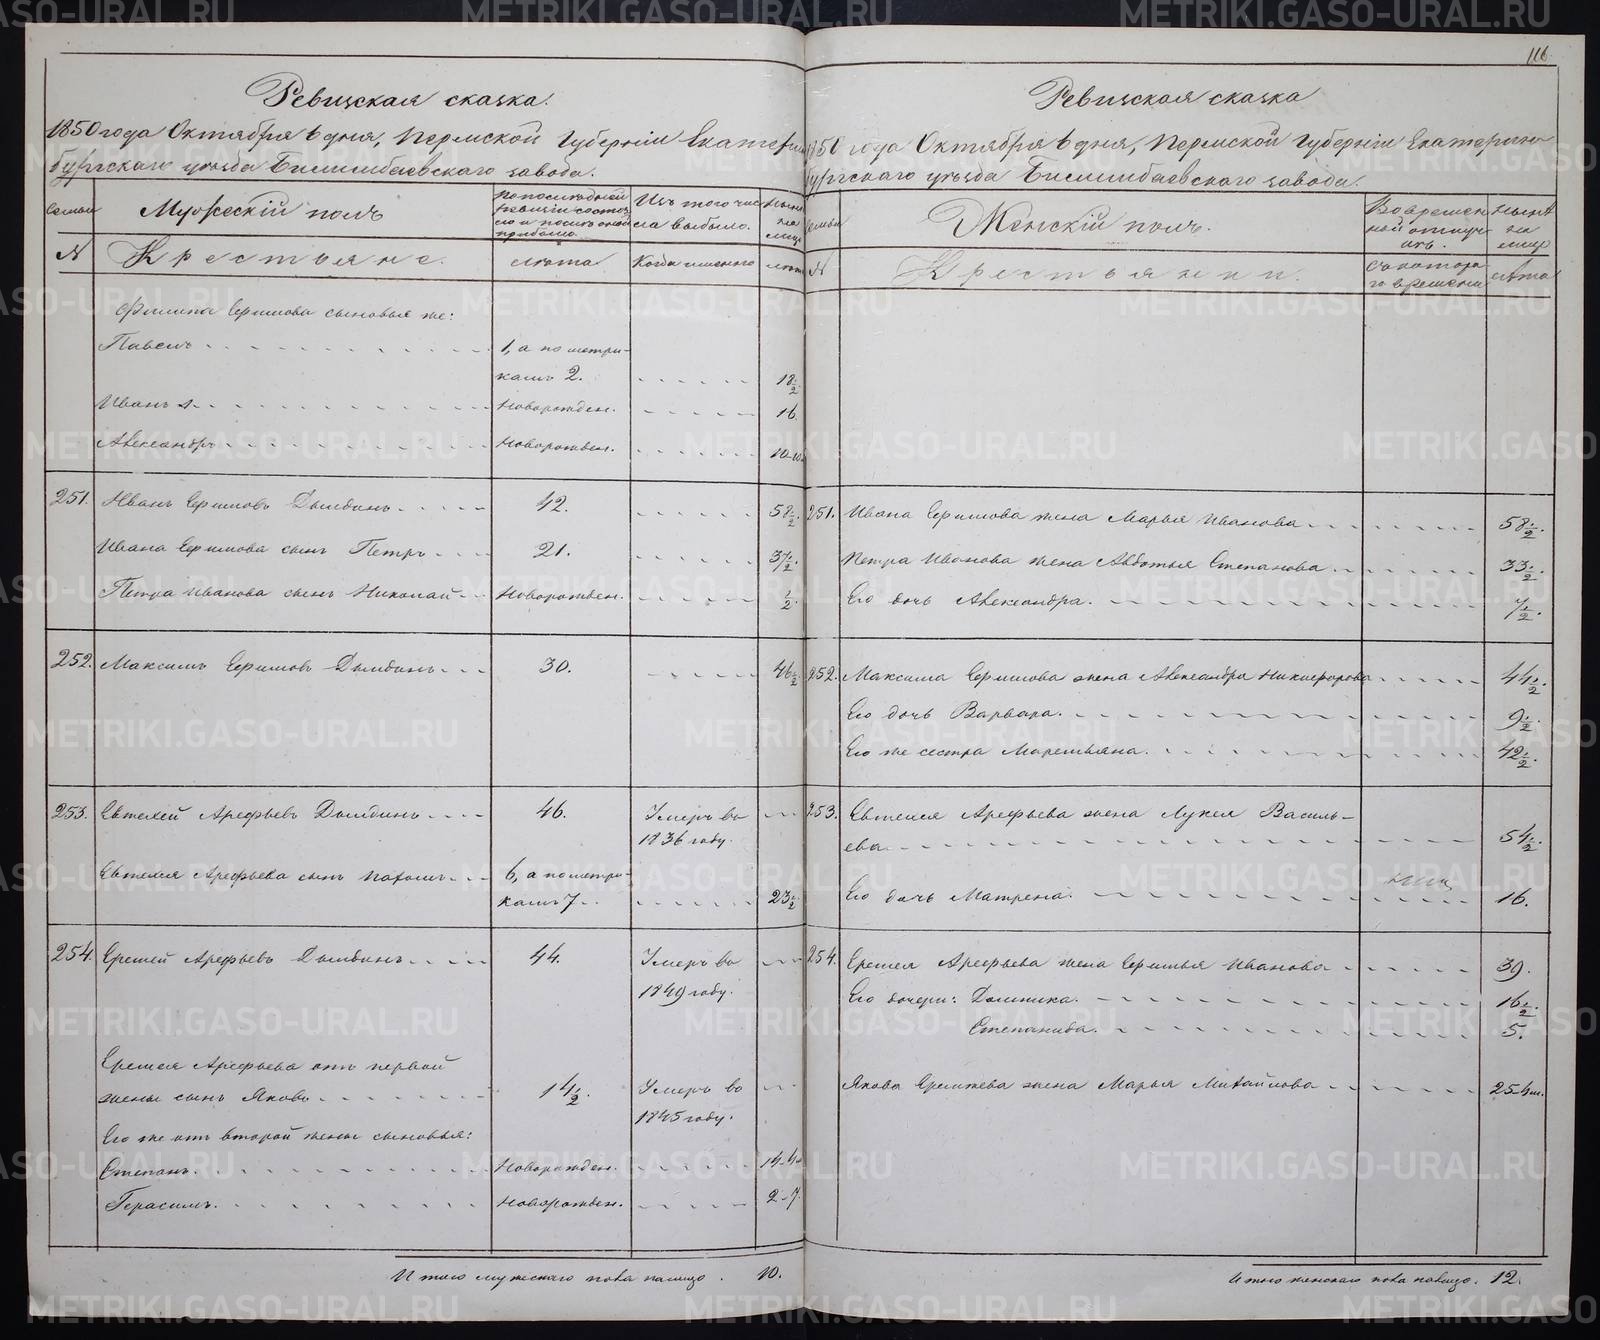 116.
Ревизская сказка.
1850 года Октября 6 дня, Пермской Губерніи Екатерин
бургскаго уѣзда Билимбаевскаго завода.
Семьи
Мужескій полъ
По последней
ревизіи состоя
ло и послѣ оной
прибыло.
Изъ того чис
ла выбыло.
Нынѣ
на
лицо
№
Крестьяне.
лѣта
Когда именно
лѣта
Филипа Ефимова сыновья же:
Павелъ
1, а по метри-
камъ 2.
18 1/2
Иванъ 1
Новорожден.
16
Александръ
Новорожден.
251. Иванъ Ефимовъ Дылдинъ 42. 58 1/2
Ивана Ефимова сынъ Петръ 21. 37 1/2
Петра Иванова сынъ Николай Новорожден. 1/2.
252. Максимъ Ефимовъ Дылдинъ 30. 46 1/2
253. Евтихей Арефьевъ Дылдинъ 46. Умеръ въ
1836 году.
Евтихея Арефьева сынъ 6, а по метри-
камъ 7. 23 1/2
254. Еремей Арефьевъ Дылдинъ 44. Умеръ въ
1849 году.
Еремея Арефьева отъ первой
жены сынъ Яковъ 14 1/2. Умеръ въ
1845 году.
Его же отъ второй жены сыновья:
Степанъ. Новорожден.
Герасимъ. Новорожден. 2-7.
Итого мужескаго пола налицо. 10.
Ревизская сказка
1850 года Октября 6 дня, Пермской Губерніи Екатерино
бургскаго уѣзда Билимбаевскаго завода.
Семьи
Женскій полъ.
Во времен
ной отлуч
кѣ.
Нынѣ
на
лицо
№
Крестьянки.
Съ котора
го времени
лѣта
251. Ивана Ефимова жена Марья Иванова 58 1/2.
Петра Иванова жена Авдотья Степанова 33 1/2.
Его дочь Александра. 7 1/2.
252. Максима Ефимова жена Александра Никифорова 44 1/2.
Его дочь Варвара. 9 1/2.
Его же сестра Маремьяна. 42 1/2.
253. Евтихея Арефьева жена Лукея Василь-
ева. 54 1/2.
Его дочь Матрена. 16.
254. Еремея Арефьева жена Ефимья Иванова 39.
Его дочери: Домника. 16 1/2.
Степанида. 5.
Якова Еремѣева жена Марья Михайлова 25-4 м.
Итого женскаго пола налицо. 12.
METRIKI.GASO-URAL.RU